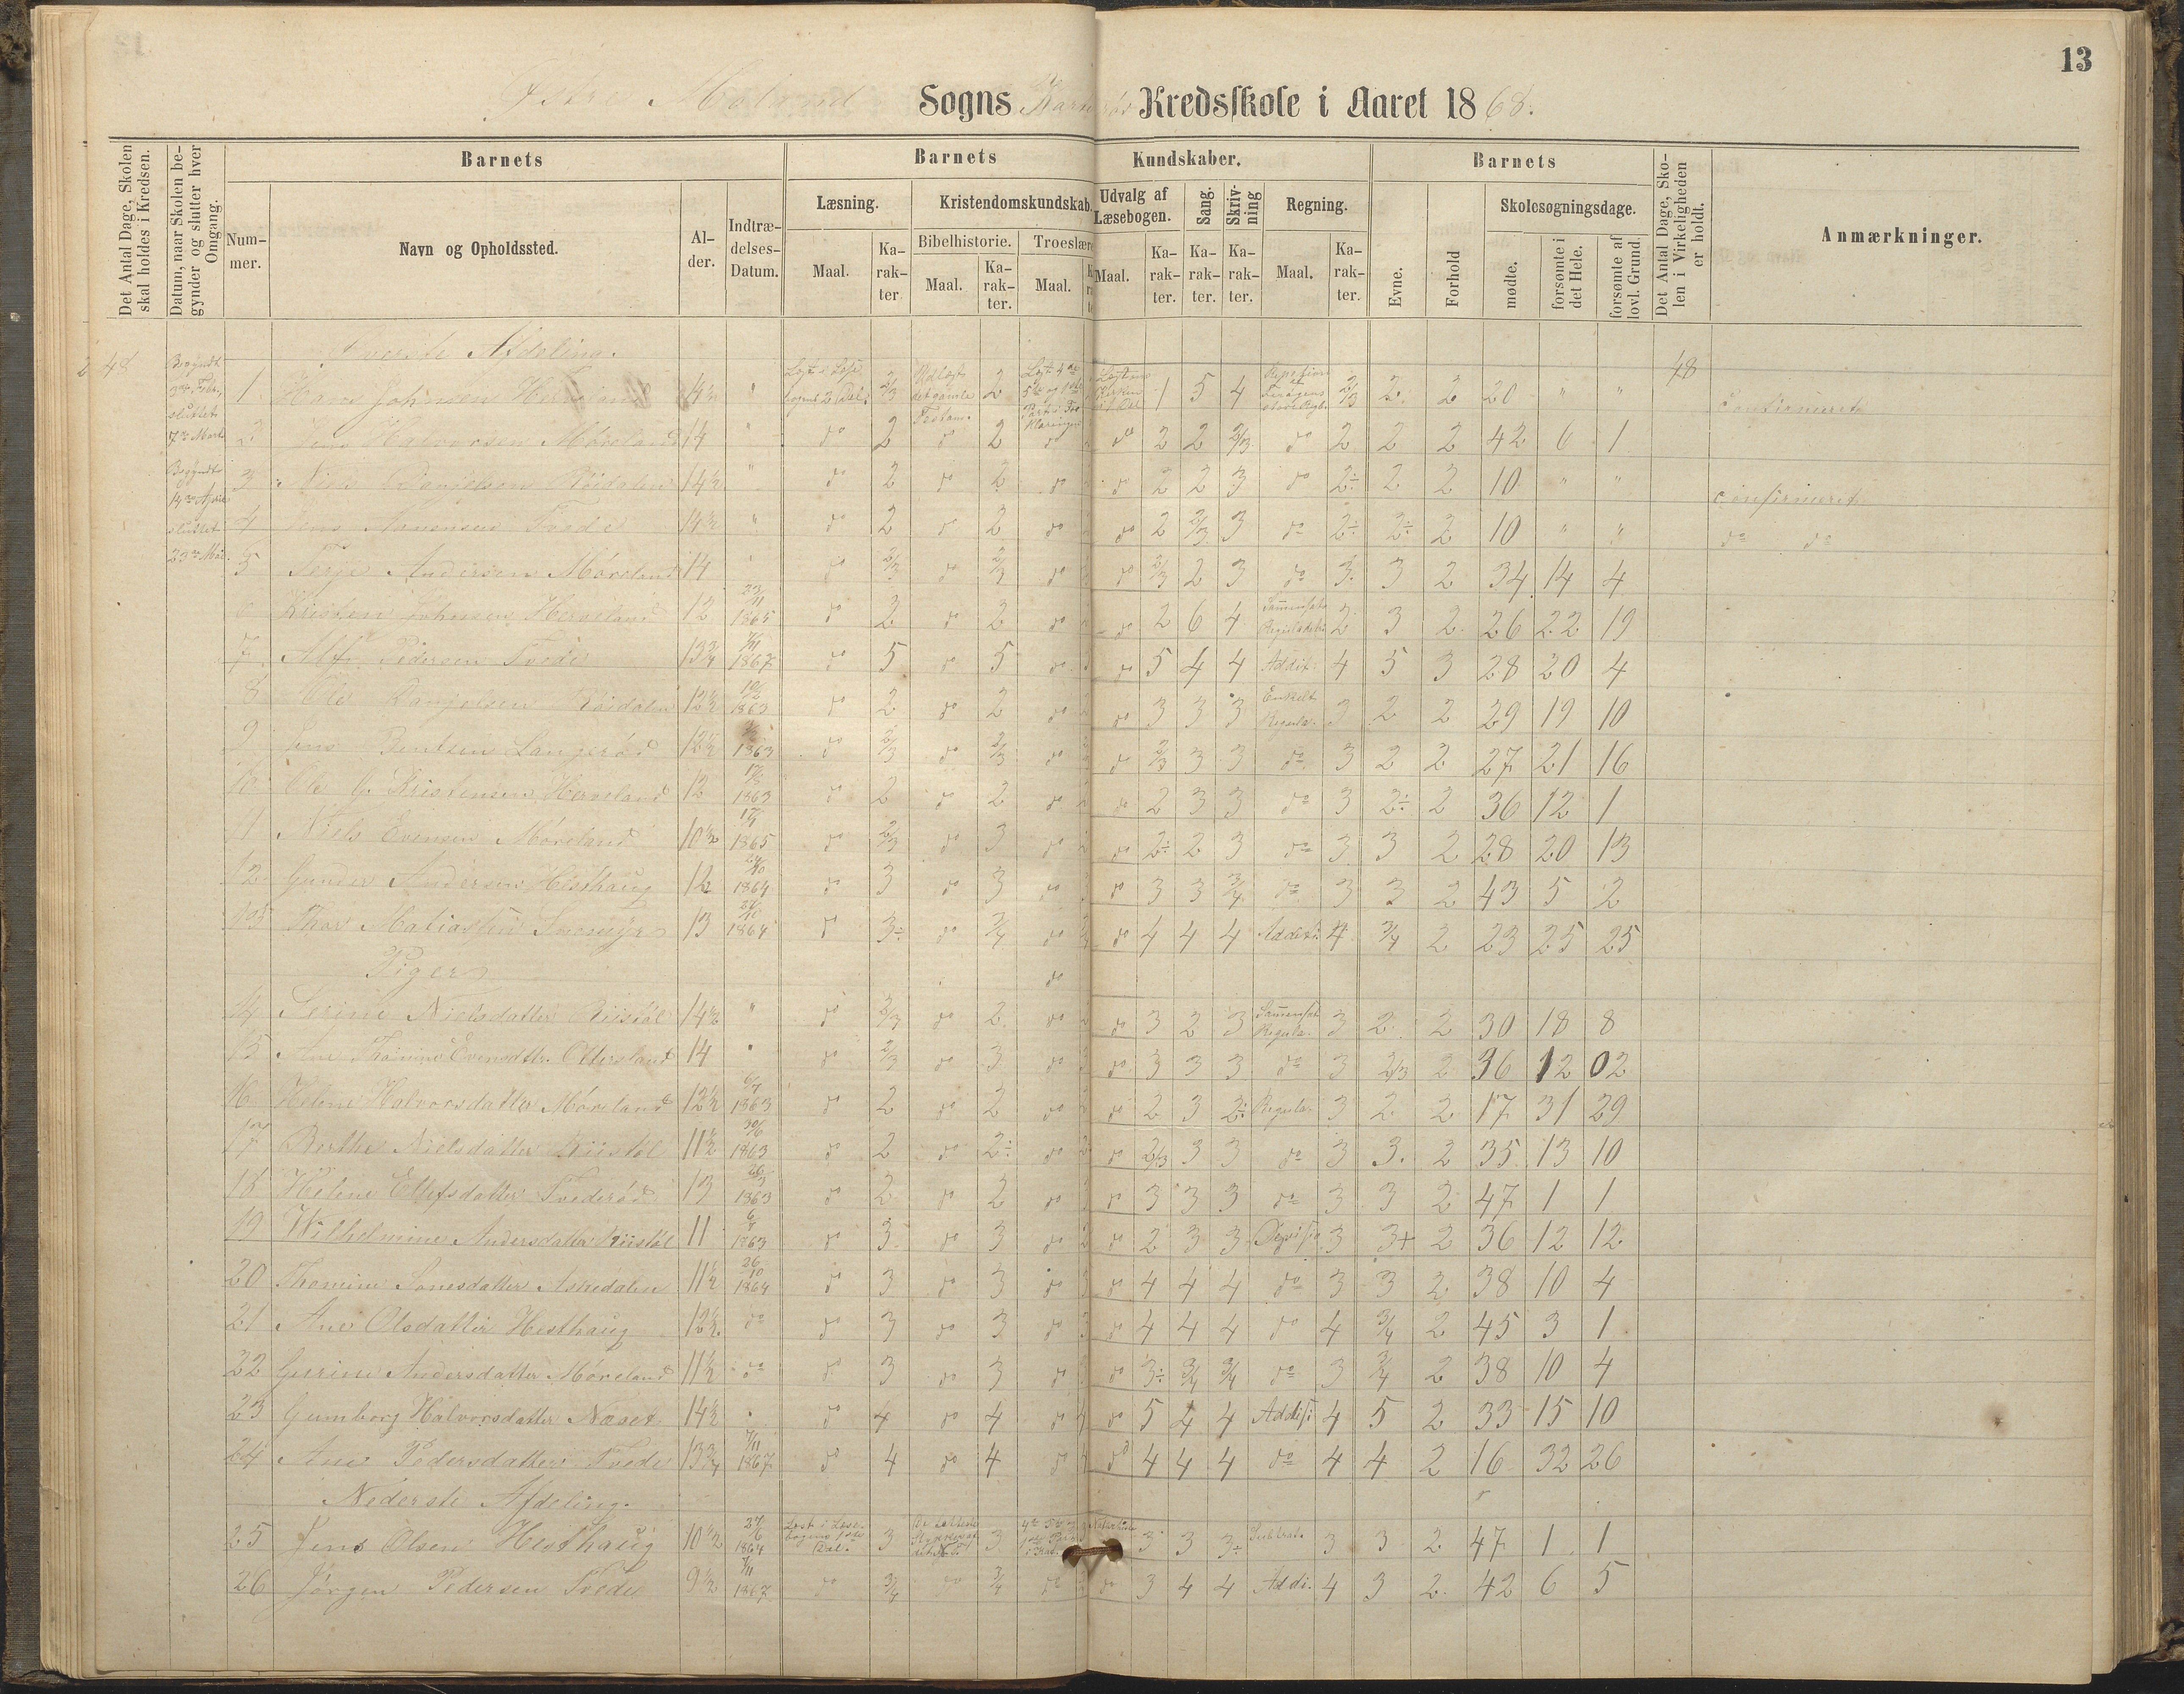 13
Østre Moland Sogns Kredsskole i Aaret 1868.
Det Antal Dage, Skolen skal holdes i Kredsen.
Datum, naar Skolen begynder og slutter hver Omgang.
Barnets
Nummer.
Navn og Opholdssted.
Alder.
Indtrædelses-Datum.
Barnets Kundskaber.
Læsning.
Maal.
Karakter
Kristendomskundskab.
Bibelhistorie.
Maal.
Karakter.
Troeslære
Maal.
Udvalg af Læsebogen.
Maal.
Karakter.
Sang.
Karakter.
Skrivning
Karakter.
Regning.
Maal.
Karakter.
Barnets
Evne.
Forhold
Skolesøgningsdage.
mødte.
forsømte i det Hele.
forsømte af lovl. Grund.
Det Antal Dage, Skolen i Virkeligheden er holdt.
Anmærkninger.
Øverste Afdeling.
48
Begyndt 3die Febr., sluttet 7de Marts
Begyndt 14de April sluttet 23de Mai
48
1 Hans Johnsen Herveland 14½ " 2/3 2 1 5 4 2/3 2 2 20 " " confirmeret
2 Jens Halvorsen Møreland 14 " do 2 do 2 do do 2 2 2/3 do 2 2 2 42 6 1
3 Niels Danjelsen Røidalen 14½ " do 2 do 2 do do 2 2 3 do 2÷ 2 2 10 " " confirmeret
4 Jens Tvede 14½ " do 2 do 2 do do 2 2/3 3 do 2÷ 2÷ 2 10 " " do do
5 Terje Andersen Møreland 14 " do 2/3 do 2/3 do do 2/3 2 3 do 3 3 2 34 14 4
6 Kristen Johnsen Herveland 12 23/11 1865 do 2 do 2 do do 2 6 4 2 3 2 26 22 19
7 Alf Pedersen Tvede 13¾ 7/11 1867 do 5 do 5 do do 5 4 4 Addit. 4 5 3 28 20 4
8 Ole Danjelsen Røidalen 12½ 1863 do 2 do 2 do do 3 3 3 Enkelt Regula. 3 2 2 29 19 10
9 Jens Bentsen Langerød 12½ 1863 do 2/3 do 2/3 do do 2/3 3 3 do 3 2 2 27 21 16
10 Ole Kristensen Herveland 12 1863 do 2 do 2 do do 2 3 3 do 3 2÷ 2 36 12 1
11 Niels Evensen Møreland 10½ 1865 do 2/3 do 3 do do 2÷ 2 3 do 3 3 2 28 20 13
12 Gunder Andersen Hesthaug 12 24/10 1864 do 3 do 3 do do 3 3 3/4 do 3 3 2 43 5 2
13 Thor Matiassen 13 1864 do 3÷ do 3/4 do do 4 4 4 Addit. 4 3/4 2 23 25 25
Piger
do
14 Serine Nielsdatter Riistøl 14½ " do 2/3 do 2 do do 3 2 3 Sammensat Regula. 3 2 2 30 18 8
15 Ane Thomine Evensdtr. Ottersland 14 do 2/3 do 3 do do 3 3 3 do 3 2/3 2 36 12 02
16 Helene Halvorsdatter Møreland 12½ 6/7 1863 do 2 do 2 do do 2 3 2÷ Regula. 3 2 2 17 31 29
17 Berthe Nielsdatter Riistøl 11½ 30/6 1863 do 2 do 2÷ do do 2/3 3 3 do 3 3. 2 35 13 10
18 Helene Ellefsdatter Tvederød 13 1863 do 2 do 2 do do 3 3 3 do 3 3 2 47 1 1
19 Wilhelmine Andersdatter Riistøl 11 1863 do 3 do 3 do do 2 3 3 3 3+ 2 36 12 12
20 Thomine Askedalen 11½ 26/10 1864 do 3 do 3 do do 4 4 4 do 3 3 2 38 10 4
21 Ane Olsdatter Hesthaug 12½ do do 3 do 3 do do 4 4 4 do 4 3/4 2 45 3 1
22 Gurine Andersdatter Møreland 11½ do do 3 do 3 do do 3÷ 3/4 3/4 do 3 3/4 2 38 10 4
23 Gumborg Halvorsdatter Næset 14½ do 4 do 4 do do 5 4 4 Addit. 4 5 2 33 15 10
24 Ane Pedersdatter Tvede 13¾ 7/11 1867 do 4 do 4 do do 4 4 4 do 4 4 2 16 32 26
Nederste Afdeling.
25 Jens Olsen Hesthaug 10½ 27/6 1864 Læst i Læsebogens 1ste Dal. 3 3 3 3 3÷ Subtrat. 3 3 2 47 1 1
26 Jørgen Pedersen Tvede 9½ 7/11 1867 do 3/4 do 3/4 do do 3 4 4 Addi. 4 3 2 42 6 5